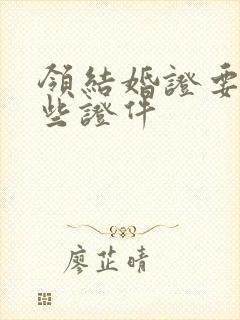 領結婚證要
些證件
廖芷晴